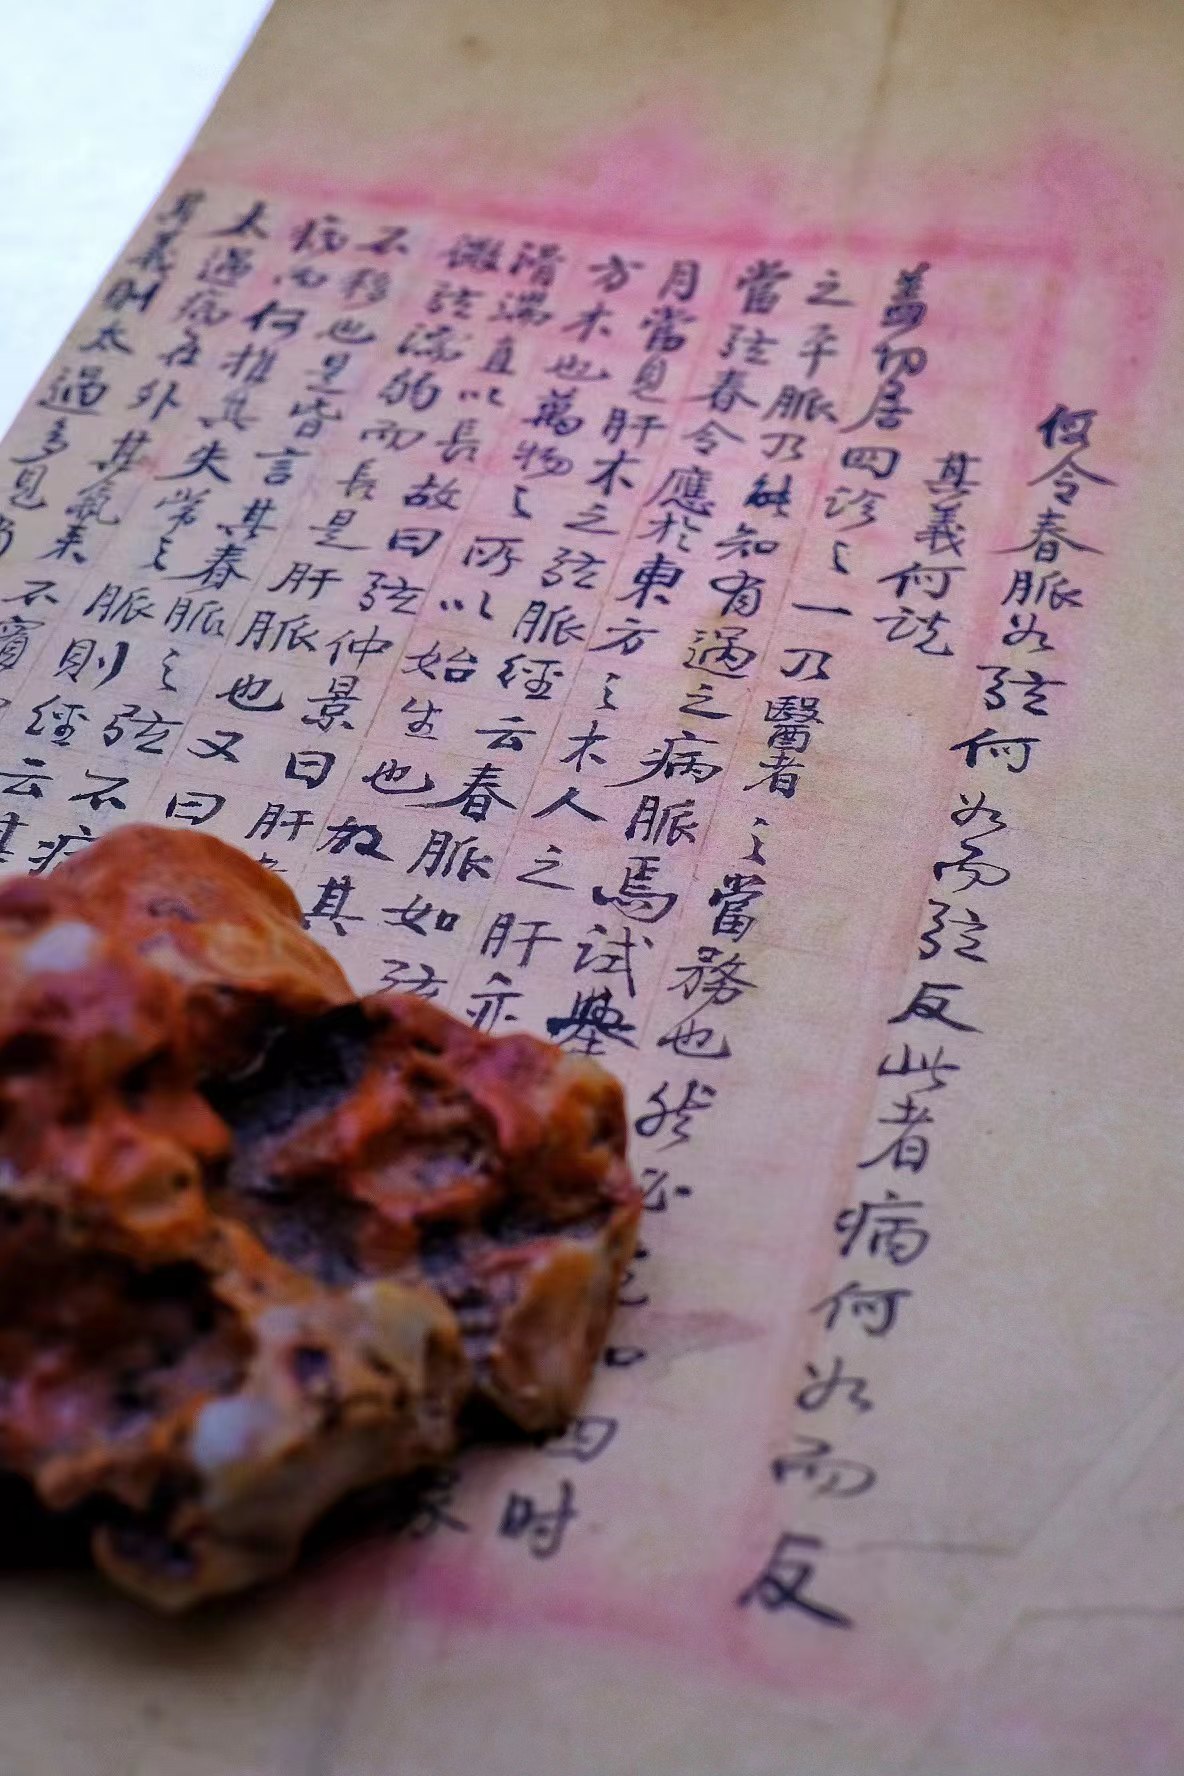 何令春脈如弦何如而弦反此者病何如而反
其義何説
蓋切居四診之一乃醫者之當務也然必四时
之平脈乃能知有過之病脈焉試舉
當弦春令應於東方之木人之肝亦
月當見肝木之弦脈經云春脈如弦
方木也萬物之所以始生也故其
滑端直以長故曰弦仲景曰肝
微弦濡弱而長是肝脈也又曰
不移也是皆言其春脈之弦不病
病而何推其失常之脈則經云其
太過病在外其氣來不實
其義則太過多見